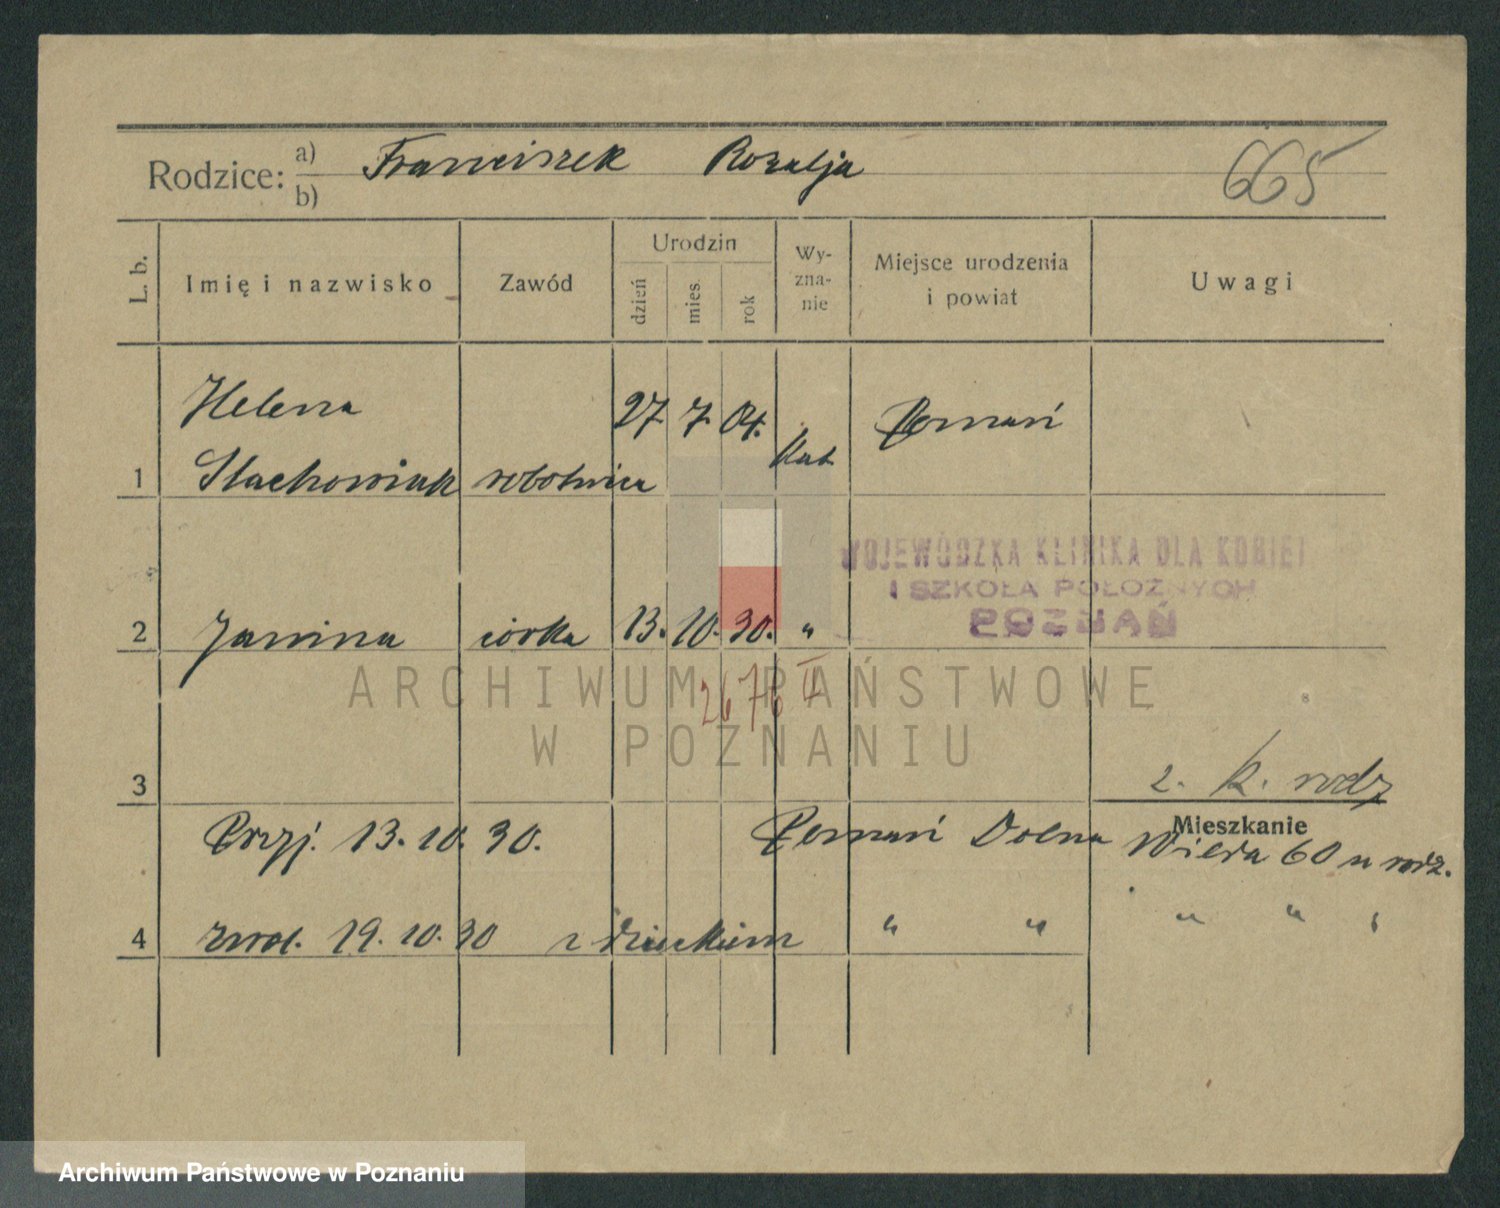 Rodzice: a) Franciszek Rozalja 665
b)
L. b. Imię i nazwisko Zawód Urodzin dzień mies. rok Wy-zna-nie Miejsce urodzenia i powiat Uwagi
Helena 27. 7. 04. Poznań
1 Stachowiak robotnica kat
WOJEWÓDZKA KLINIKA DLA KOBIET
I SZKOŁA POŁOŻNYCH
POZNAŃ
2 Janina córka 13. 10. 30. "
2676 II
ARCHIWUM PAŃSTWOWE
W POZNANIU
3 2. k. rodz
Mieszkanie
Przyj. 13. 10. 30. Poznań Dolna Wilda 60 u rodz.
4 zwol. 19. 10. 30 z dzieckiem " " " " "
Archiwum Państwowe w Poznaniu